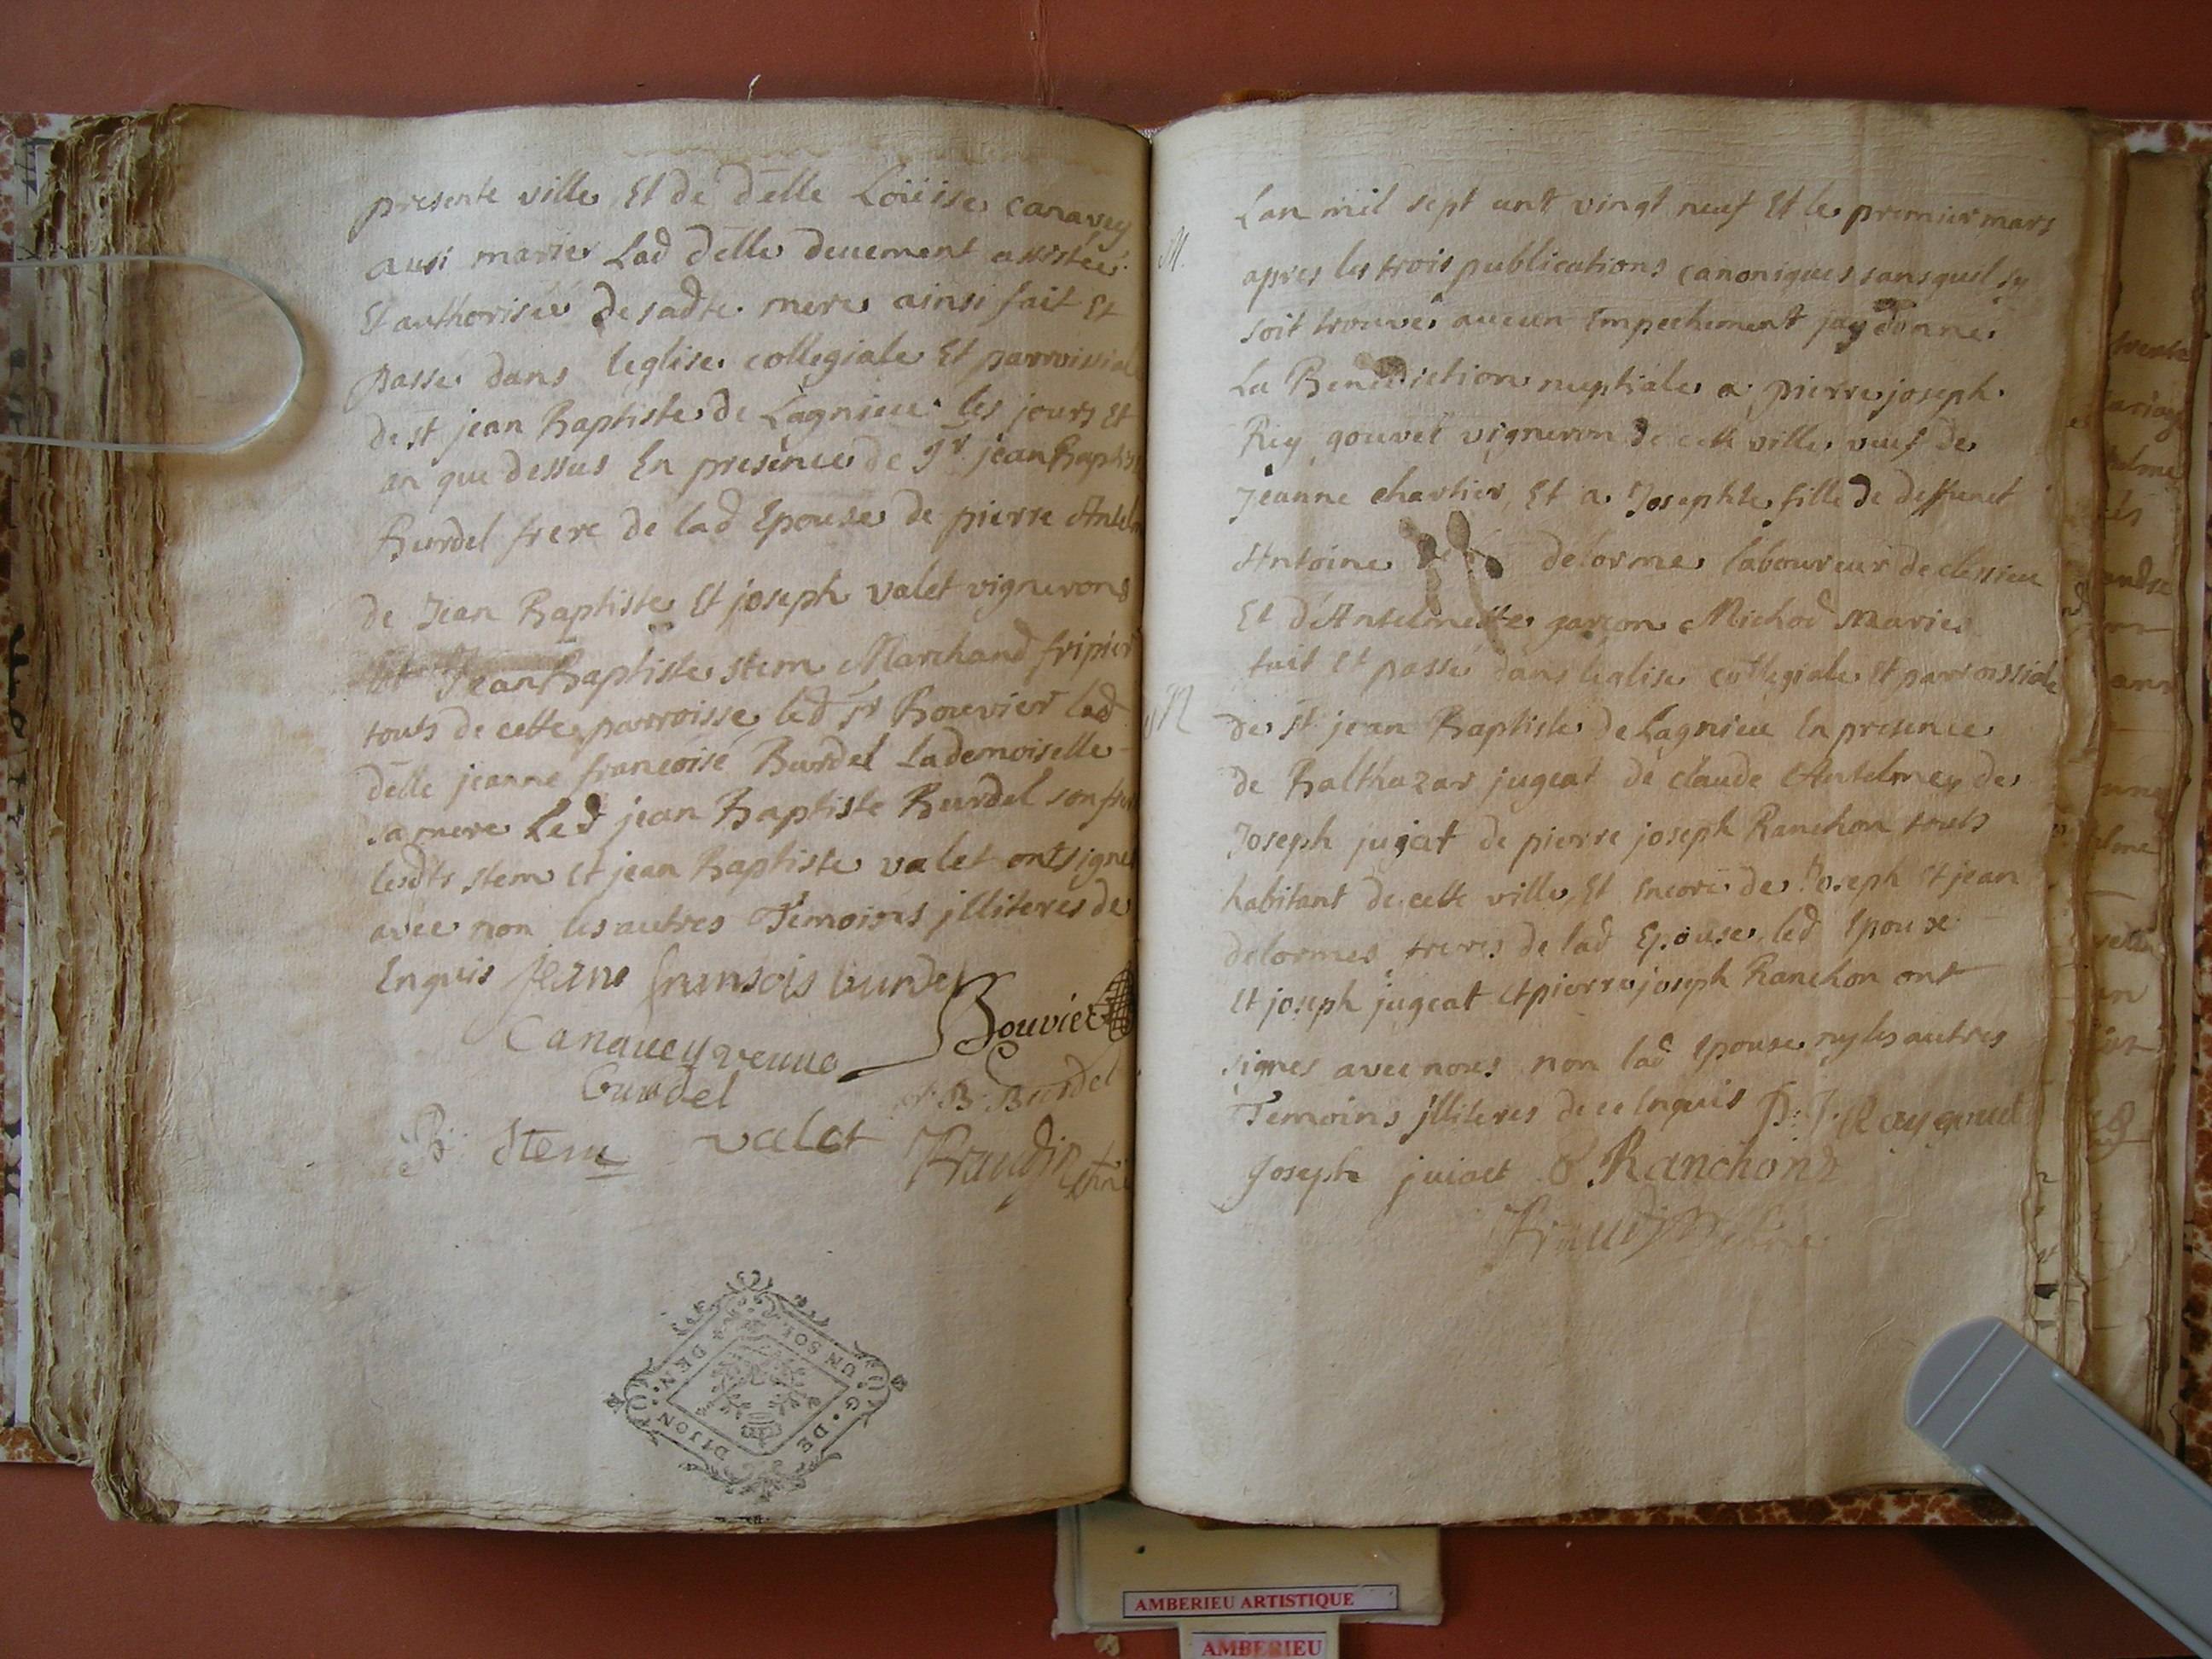 presente ville Et de delle Loüise canavey
ausi marier Lad delle deuement assistée
Et authorisée de sadte mere ainsi fait Et
passe dans leglise collegiale Et parroissiale
de st jean Baptiste de Lagnieu les jours Et
an que dessus En presence de Sr jean Baptis
Burdel frere de lad Epouse de pierre Antel
de Jean Baptiste Et joseph valet vignerons
Jean Baptiste stem Marchand fripier
touts de cette parroisse led sr Bouvier lad
delle jeanne francoise Burdel lademoiselle
sa mere Led jean Baptiste Burdel son frere
lesdts stem Et jean Baptiste valet ont signé
avec non les autres Temoins jlliteres de
Enquis jeane fransois burdel
Canauey veuue Bouvier
burdel J. B. Burdel
B. Stem valet
M.
Lan mil sept cent vingt neuf Et le premier mars
apres les trois publications canoniques sans quil sy
soit trouvé aucun Empechement jay donne
La Benediction nuptiale a pierre joseph
Rey gouvet vigneron de cette ville veuf de
Jeanne chartier Et a Josephte fille de deffunct
Antoine delorme laboureur de
Et d'Antelmette garcon Michod Maries
fait Et passé dans leglise collegiale Et parroissiale
de st jean Baptiste de Lagnieu En presence
de Balthazar jugeat de claude Antelme, de
Joseph jujat de pierre joseph Ranchon touts
habitant de cette ville, Et Encore de Joseph Et jean
delormes freres de lad Epouse, led Epoux
Et joseph jugeat Et pierre joseph Ranchon ont
signes avec nous non lad Epouse ny les autres
Temoins jlliteres de ce Enquis P. J. Raygouet
Joseph juiaet Ranchond
DIJON
G. DE
UN SOL
DEN.
AMBERIEU ARTISTIQUE
AMBERIEU